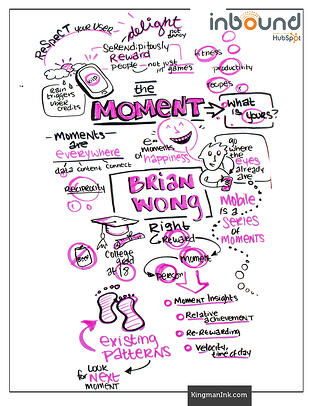 inbound
HubSpot
RESPECT your user
delight
not
annoy
Serendipitously
Reward
people - not just
in games
fitness
productivity
recipes
Rain
triggers
Uber
credits
the
MOMENT
what
is yours?
- MOMENTS -
are
everywhere
data content connects
Reciprocity
e.g.
moments of
happiness
go
where
the
eyes
already
are
BRIAN
WONG
Mobile
is a
series
of
moments
College
grad
at 18
Right
Reward
moment
person
existing
patterns
look
for Next
moment
Moment Insights
Relative
achievement
Re-Rewarding
Velocity,
time of day
KingmanInk.com